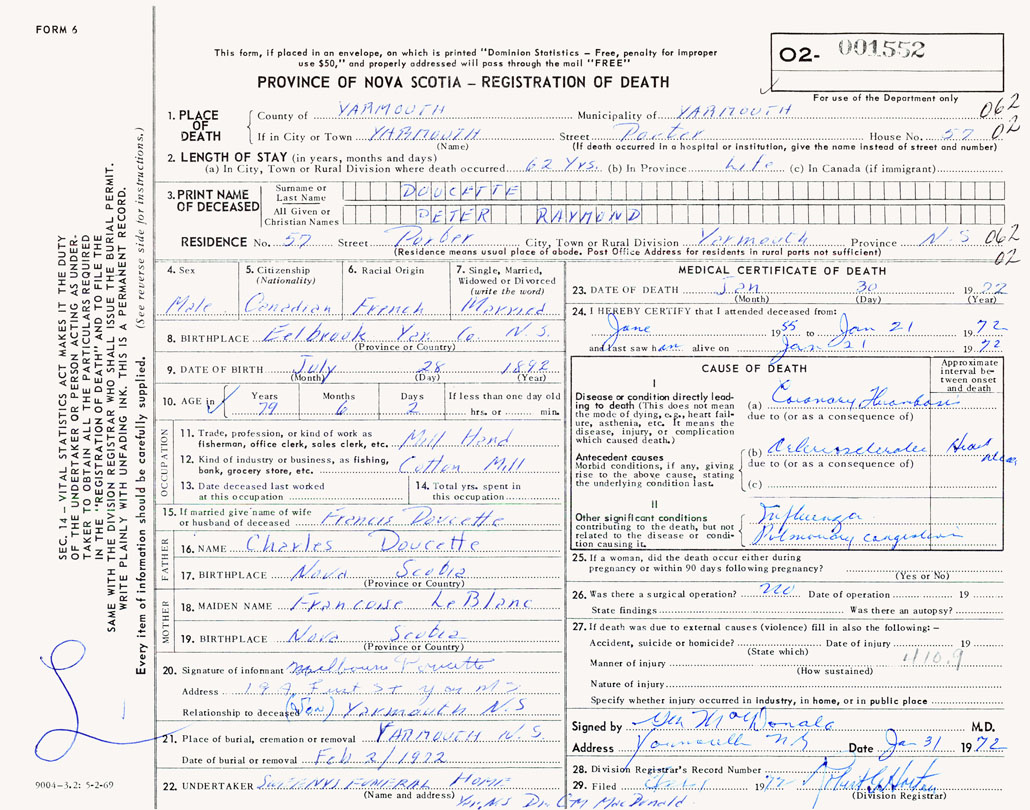 FORM 6
02- 001552
For use of the Department only
This form, if placed in an envelope, on which is printed "Dominion Statistics – Free, penalty for improper
use $50," and properly addressed will pass through the mail "FREE"
PROVINCE OF NOVA SCOTIA – REGISTRATION OF DEATH
1. PLACE OF DEATH
County of YARMOUTH Municipality of YARMOUTH 062
If in City or Town YARMOUTH Street Porter House No. 57 02
(Name) (If death occurred in a hospital or institution, give the name instead of street and number)
2. LENGTH OF STAY (in years, months and days)
(a) In City, Town or Rural Division where death occurred 62 Yrs. (b) In Province Life (c) In Canada (if immigrant)
3. PRINT NAME OF DECEASED
Surname or Last Name DOUCETTE
All Given or Christian Names PETER RAYMOND
RESIDENCE No. 57 Street Porter City, Town or Rural Division Yarmouth Province N.S 062
(Residence means usual place of abode. Post Office Address for residents in rural parts not sufficient) 02
4. Sex Male
5. Citizenship (Nationality) Canadian
6. Racial Origin French
7. Single, Married, Widowed or Divorced (write the word) Married
8. BIRTHPLACE Eelbrook Yar. Co. N.S.
(Province or Country)
9. DATE OF BIRTH July 28 1892
(Month) (Day) (Year)
10. AGE in Years 79 Months 6 Days 2 If less than one day old hrs. or min.
OCCUPATION
11. Trade, profession, or kind of work as
fisherman, office clerk, sales clerk, etc. Mill Hand
12. Kind of industry or business, as fishing,
bank, grocery store, etc. Cotton Mill
13. Date deceased last worked
at this occupation
14. Total yrs. spent in
this occupation
15. If married give name of wife
or husband of deceased Francis Doucette
FATHER
16. NAME Charles Doucette
17. BIRTHPLACE Nova Scotia
(Province or Country)
MOTHER
18. MAIDEN NAME Francoise LeBlanc
19. BIRTHPLACE Nova Scotia
(Province or Country)
20. Signature of informant Doucette
Address St
Relationship to deceased (Son) Yarmouth N.S
21. Place of burial, cremation or removal YARMOUTH N.S.
Date of burial or removal Feb 2/1972
22. UNDERTAKER SWEENYS FUNERAL HOME
(Name and address) Yar. N.S Dr. C M MacDonald
MEDICAL CERTIFICATE OF DEATH
23. DATE OF DEATH Jan 30 1972
(Month) (Day) (Year)
24. I HEREBY CERTIFY that I attended deceased from:
1955 to Jan 21 1972
and last saw him alive on Jan 21 1972
CAUSE OF DEATH
Approximate interval between onset and death
I
Disease or condition directly leading
to death (This does not mean
the mode of dying, e.g., heart failure,
asthenia, etc. It means the
disease, injury, or complication
which caused death.)
(a) Coronary Thrombosis
due to (or as a consequence of)
Antecedent causes
Morbid conditions, if any, giving
rise to the above cause, stating
the underlying condition last.
(b) Arteriosclerotic Heart
due to (or as a consequence of)
(c)
II
Other significant conditions
contributing to the death, but not
related to the disease or condition
causing it.
Influenza
Pulmonary congestion
25. If a woman, did the death occur either during
pregnancy or within 90 days following pregnancy?
(Yes or No)
26. Was there a surgical operation? no Date of operation 19
State findings Was there an autopsy?
27. If death was due to external causes (violence) fill in also the following: –
Accident, suicide or homicide? Date of injury 19
(State which)
Manner of injury
(How sustained)
Nature of injury
Specify whether injury occurred in industry, in home, or in public place
Signed by MacDonald M.D.
Address Yarmouth NS Date Jan 31 1972
28. Division Registrar's Record Number
29. Filed 1972
(Division Registrar)
SEC. 14 – VITAL STATISTICS ACT MAKES IT THE DUTY
OF THE UNDERTAKER OR PERSON ACTING AS UNDERTAKER
TO OBTAIN ALL THE PARTICULARS REQUIRED
IN THE "REGISTRATION OF DEATH" AND TO FILE THE
SAME WITH THE DIVISION REGISTRAR WHO SHALL ISSUE THE BURIAL PERMIT.
WRITE PLAINLY WITH UNFADING INK. THIS IS A PERMANENT RECORD.
Every item of information should be carefully supplied. (See reverse side for instructions.)
9004-3.2: 5-2-69